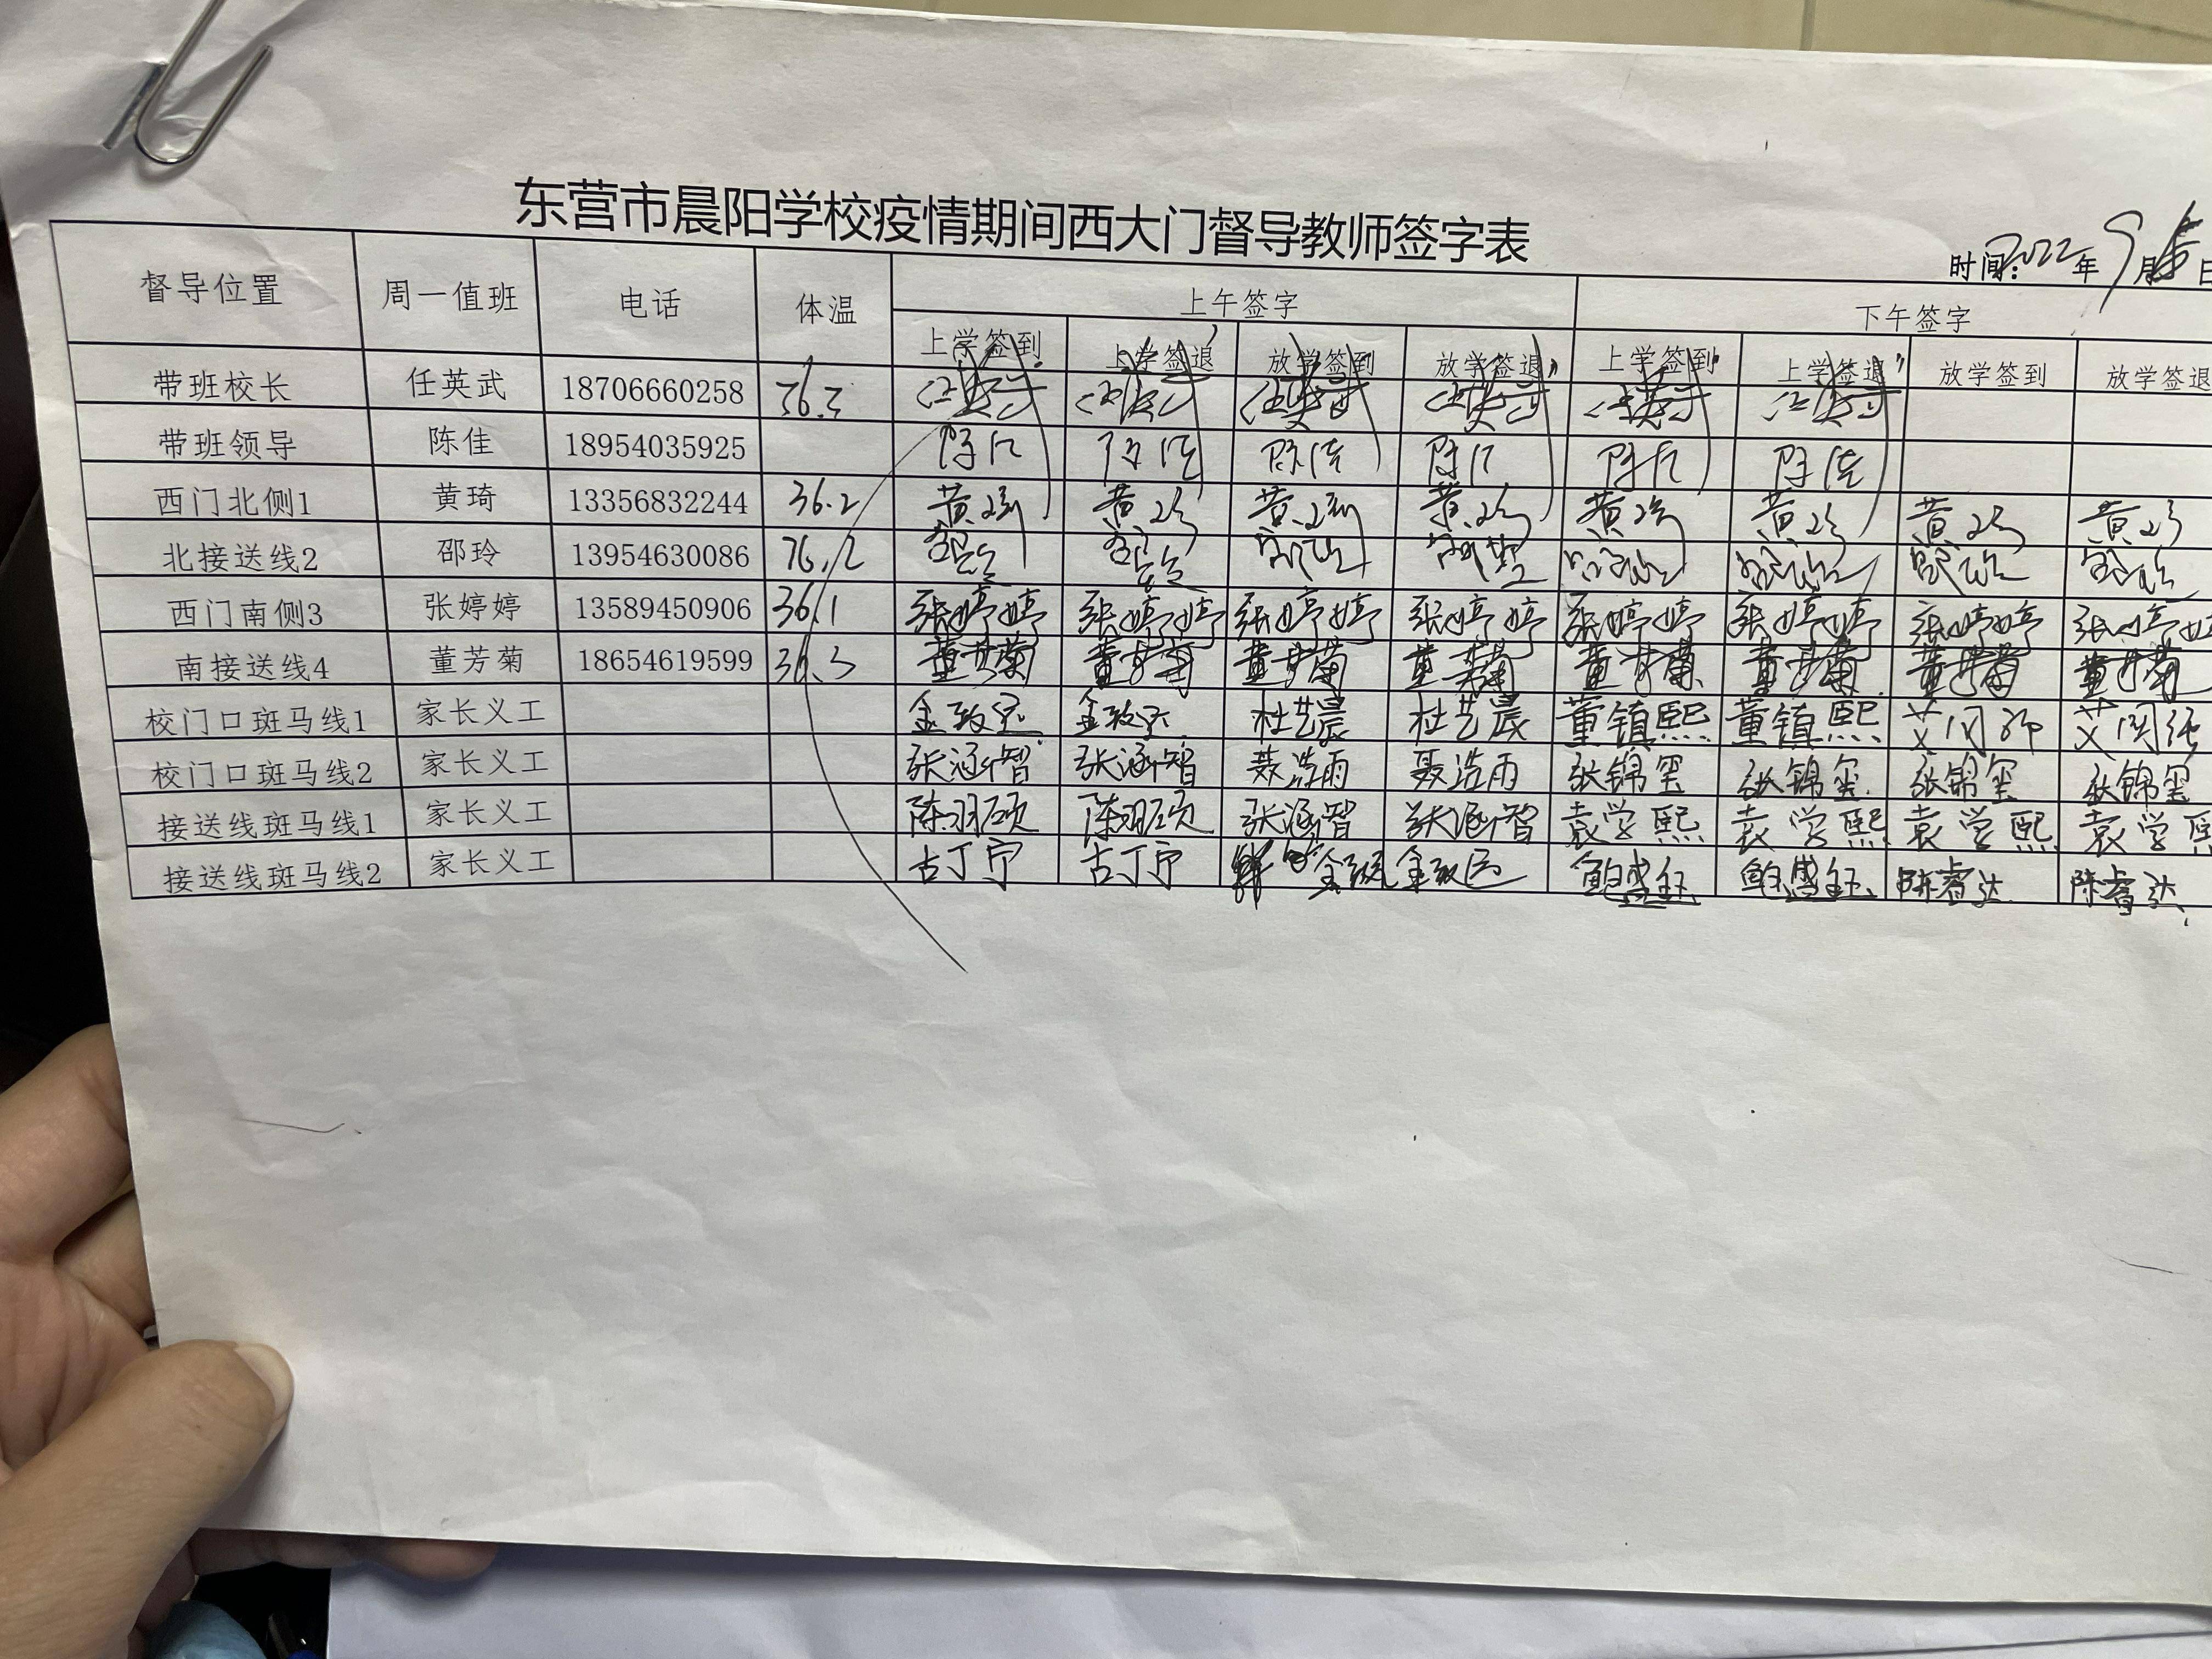 东营市晨阳学校疫情期间西大门督导教师签字表
时间:2022年9月 日
督导位置 周一值班 电话 体温 上午签字 下午签字
上学签到 上学签退 放学签到 放学签退 上学签到 上学签退 放学签到 放学签退
带班校长 任英武 18706660258 36.3 任英武 任英武 任英武 任英武 任英武 任英武
带班领导 陈佳 18954035925 陈佳 陈佳 陈佳 陈佳 陈佳 陈佳
西门北侧1 黄琦 13356832244 36.2 黄琦 黄琦 黄琦 黄琦 黄琦 黄琦 黄琦 黄琦
北接送线2 邵玲 13954630086 36.2 邵玲 邵玲 邵玲 邵玲 邵玲 邵玲 邵玲 邵玲
西门南侧3 张婷婷 13589450906 36.1 张婷婷 张婷婷 张婷婷 张婷婷 张婷婷 张婷婷 张婷婷 张婷婷
南接送线4 董芳菊 18654619599 36.3 董芳菊 董芳菊 董芳菊 董芳菊 董芳菊 董芳菊 董芳菊 董芳菊
校门口斑马线1 家长义工 杜艺晨 杜艺晨 董镇熙 董镇熙
校门口斑马线2 家长义工 张涵智 张涵智 聂浩雨 聂浩雨 张锦玺 张锦玺 张锦玺 张锦玺
接送线斑马线1 家长义工 陈羽硕 陈羽硕 张涵智 张涵智 袁学熙 袁学熙 袁学熙 袁学熙
接送线斑马线2 家长义工 古丁宁 古丁宁 鲍盛钰 鲍盛钰 陈睿达 陈睿达